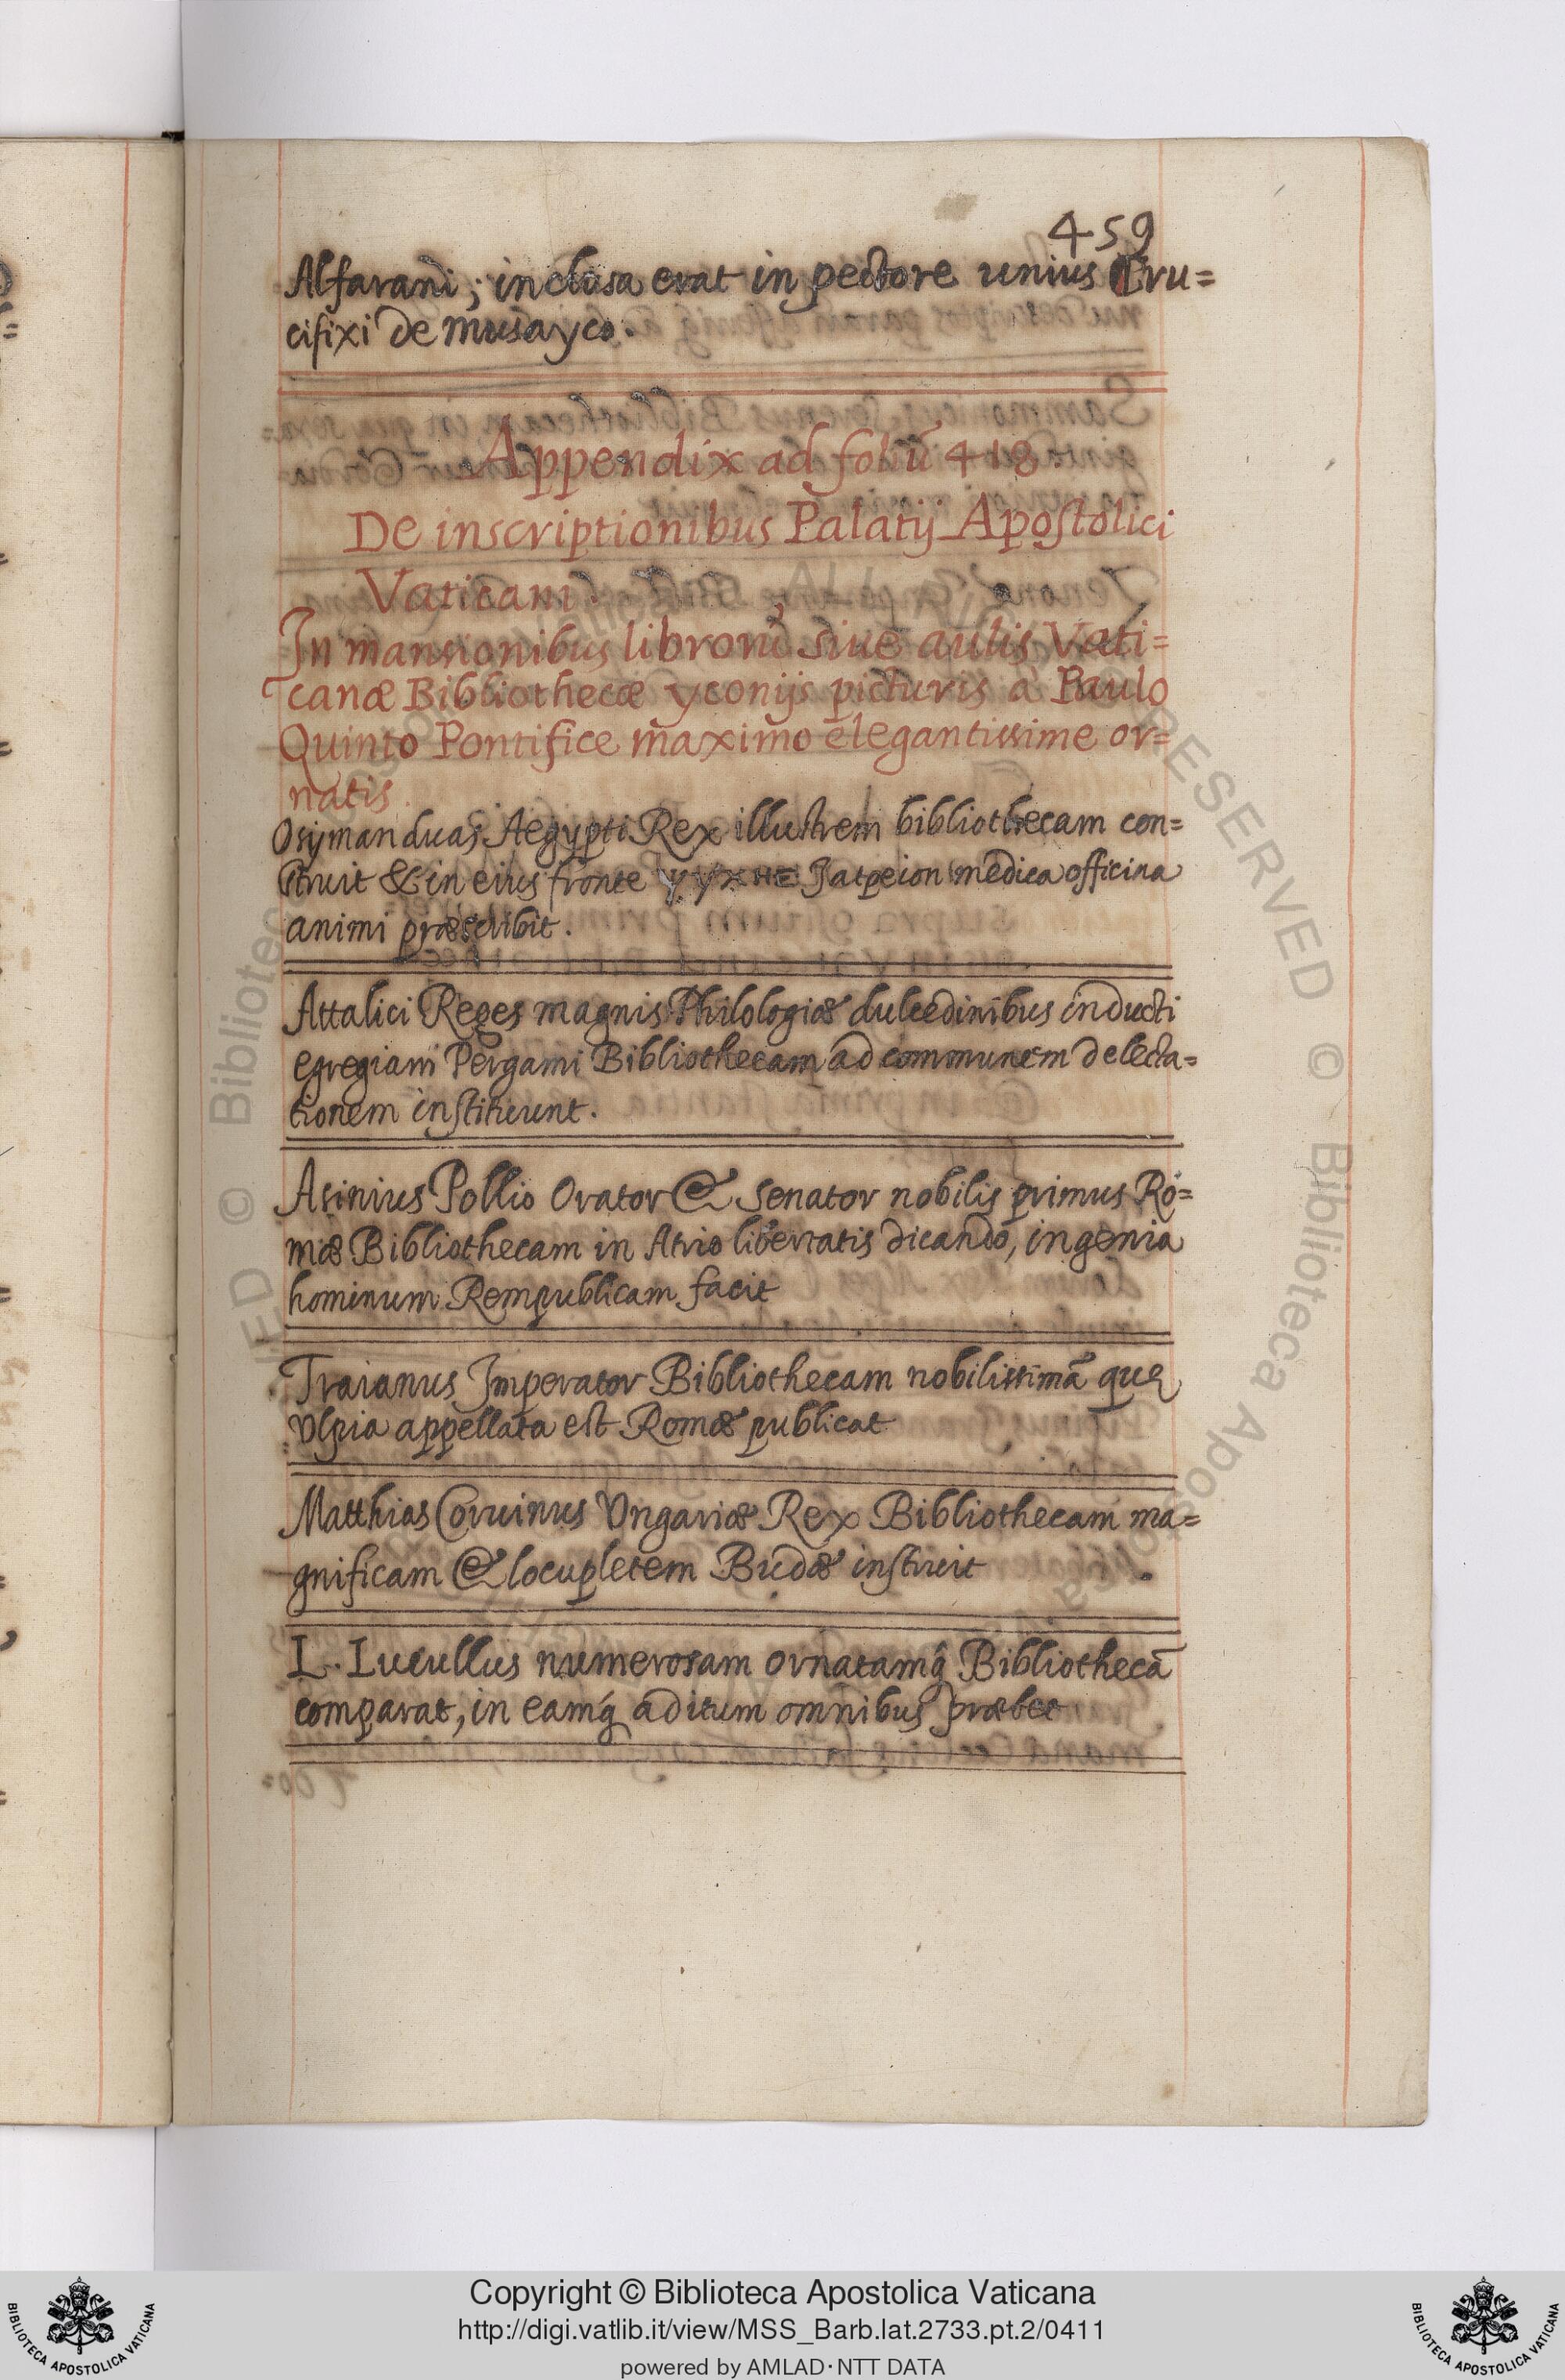 459
Alfarani; inclusa erat in pectore unius Cru=
cifixi de musayco.
Appendix ad foliũ 418.
De inscriptionibus Palatij Apostolici
Vaticani.
In mansionibus librorũ, siue aulis Vati=
canæ Bibliothecæ yconijs picturis à Paulo
Quinto Pontifice maximo elegantissime or=
natis.
Osijmanduas Aegypti Rex illustrem bibliothecam con=
struit & in eius fronte ΨΥΧΗΕ Jatpeion medica officina
animi præscribit.
Attalici Reges magnis Philologiæ dulcedinibus inducti
egregiam Pergami Bibliothecam ad communem delecta=
tionem instituunt.
Asinius Pollio Orator & Senator nobilis primus Ro=
mæ Bibliothecam in Atrio libertatis dicando, ingenia
hominum Rempublicam facit
Traianus Imperator Bibliothecam nobilissimã quę
Vlpia appellata est Romæ publicat
Matthias Coruinus Vngariæ Rex Bibliothecam ma=
gnificam & locupletem Budæ instruit
L. Lucullus numerosam ornatamq́ Bibliothecã
comparat, in eamq́ aditum omnibus præbet
Copyright © Biblioteca Apostolica Vaticana
http://digi.vatlib.it/view/MSS_Barb.lat.2733.pt.2/0411
powered by AMLAD·NTT DATA
BIBLIOTECA APOSTOLICA VATICANA
BIBLIOTECA APOSTOLICA VATICANA